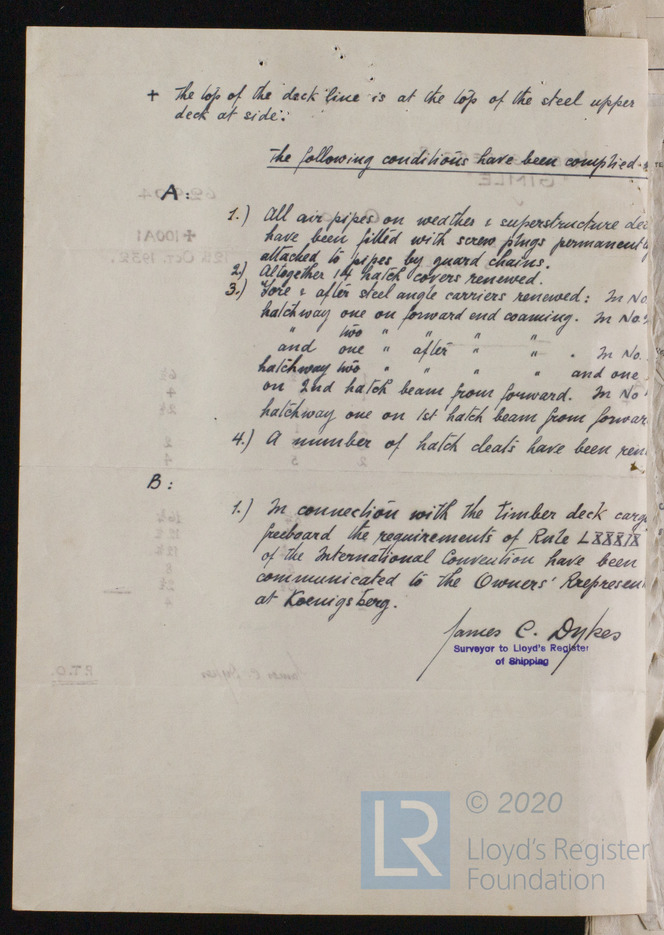 + The top of the deck line is at the top of the steel upper
deck at side.
The following conditions have been complied
A:
1.) All air pipes on weather & superstructure dec
have been fitted with screw plugs permanently
attached to pipes by guard chains.
2.) Altogether hatch covers renewed.
3.) Fore & after steel angle carriers renewed: In No
hatchway one on forward end coaming. In No.
" two " " " "
and one " after " " . In No.
hatchway two " " " " and one
on 2nd hatch beam from forward. In No
hatchway one on 1st hatch beam from forwar
4.) A number of hatch cleats have been ren
B:
1.) In connection with the timber deck carg
freeboard the requirements of Rule
of the International Convention have been
communicated to the Owners' Rrepresen
at Koenigsberg.
James C. Dykes
Surveyor to Lloyd's Register
of Shipping
P.T.O.
LR © 2020
Lloyd's Register
Foundation